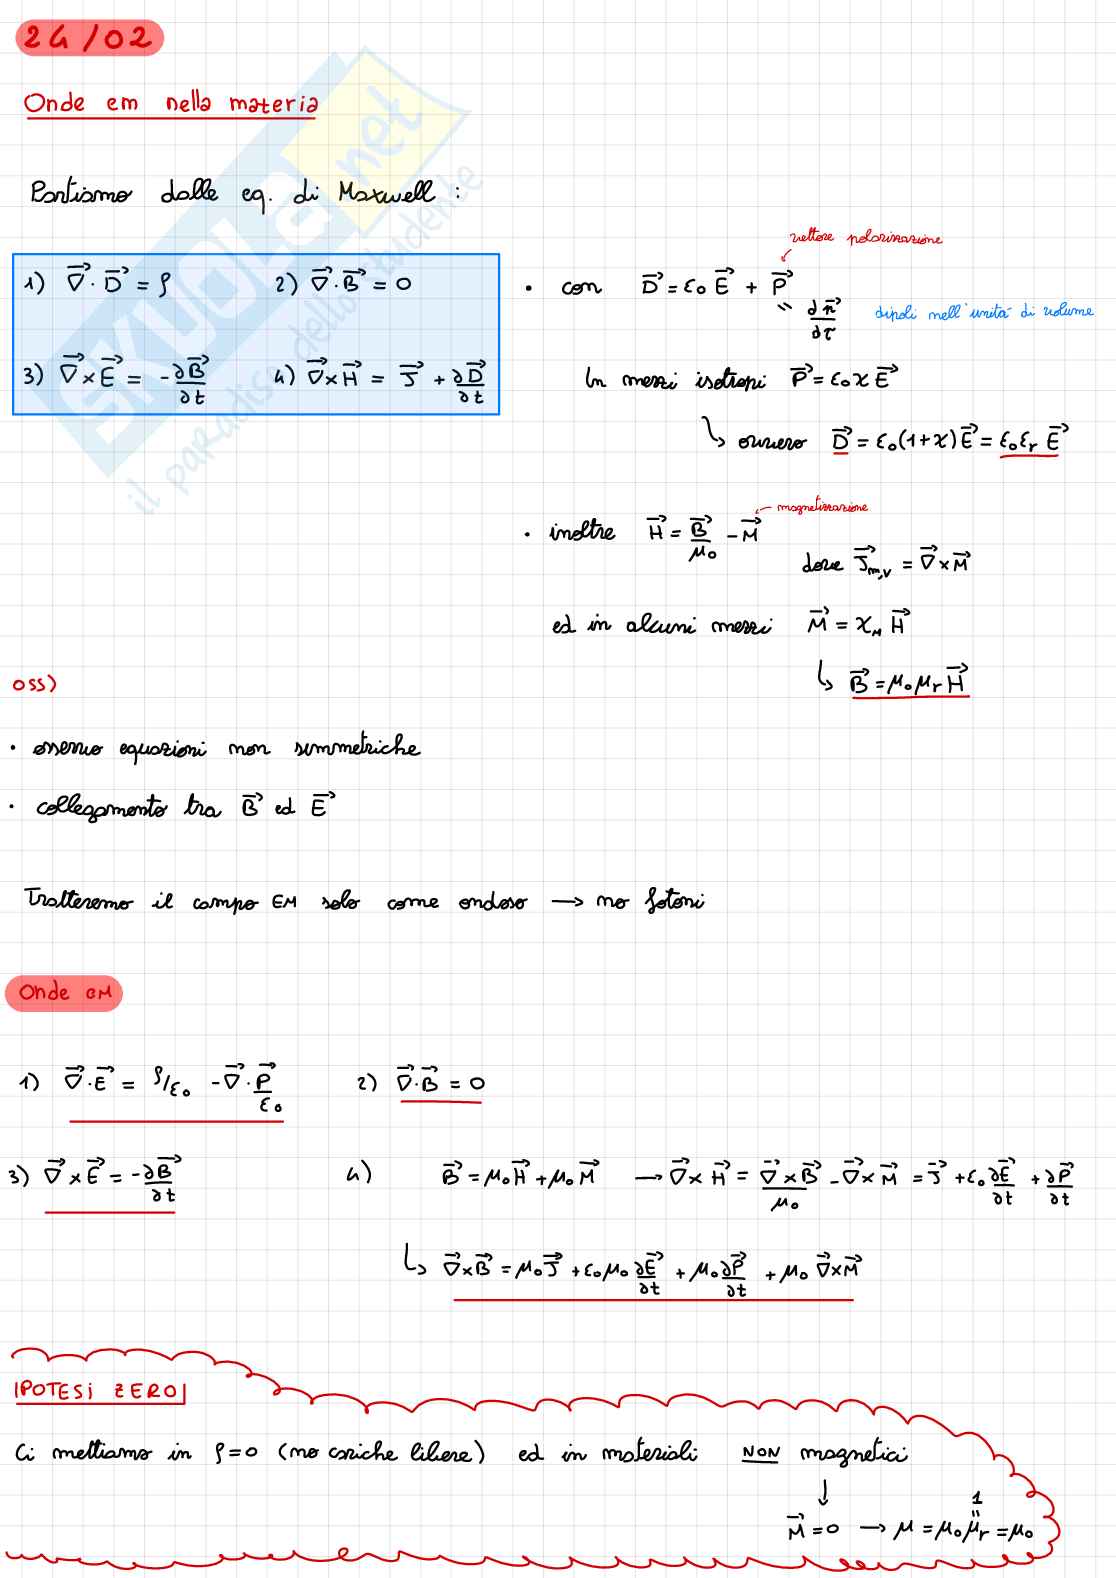 24/02
Onde em nella materia
Partiamo dalle eq. di Maxwell :
1) ∇⃗ · D⃗ = ρ 2) ∇⃗ · B⃗ = 0
3) ∇⃗ × E⃗ = -∂B⃗/∂t 4) ∇⃗ × H⃗ = J⃗ + ∂D⃗/∂t
vettore polarizzazione
• con D⃗ = ε₀ E⃗ + P⃗
" dp⃗/dτ dipoli nell'unità di volume
In mezzi isotropi P⃗ = ε₀ χ E⃗
↳ ovvero D⃗ = ε₀(1+χ)E⃗ = ε₀εᵣ E⃗
magnetizzazione
• inoltre H⃗ = B⃗/μ₀ - M⃗
dove J⃗m,v = ∇⃗ × M⃗
ed in alcuni mezzi M⃗ = χ_M H⃗
↳ B⃗ = μ₀μᵣ H⃗
oss)
• osservo equazioni non simmetriche
• collegamento tra B⃗ ed E⃗
Tratteremo il campo EM solo come ondoso → no fotoni
Onde EM
1) ∇⃗ · E⃗ = ρ/ε₀ - ∇⃗ · P⃗/ε₀ 2) ∇⃗ · B⃗ = 0
3) ∇⃗ × E⃗ = -∂B⃗/∂t 4) B⃗ = μ₀H⃗ + μ₀M⃗ → ∇⃗ × H⃗ = ∇⃗ × B⃗/μ₀ - ∇⃗ × M⃗ = J⃗ + ε₀ ∂E⃗/∂t + ∂P⃗/∂t
↳ ∇⃗ × B⃗ = μ₀J⃗ + ε₀μ₀ ∂E⃗/∂t + μ₀ ∂P⃗/∂t + μ₀ ∇⃗ × M⃗
IPOTESI ZERO
Ci mettiamo in ρ=0 (no cariche libere) ed in materiali NON magnetici
↓
1
"
M⃗ = 0 → μ = μ₀μᵣ = μ₀
SKUOLA.net
il paradiso dello studente